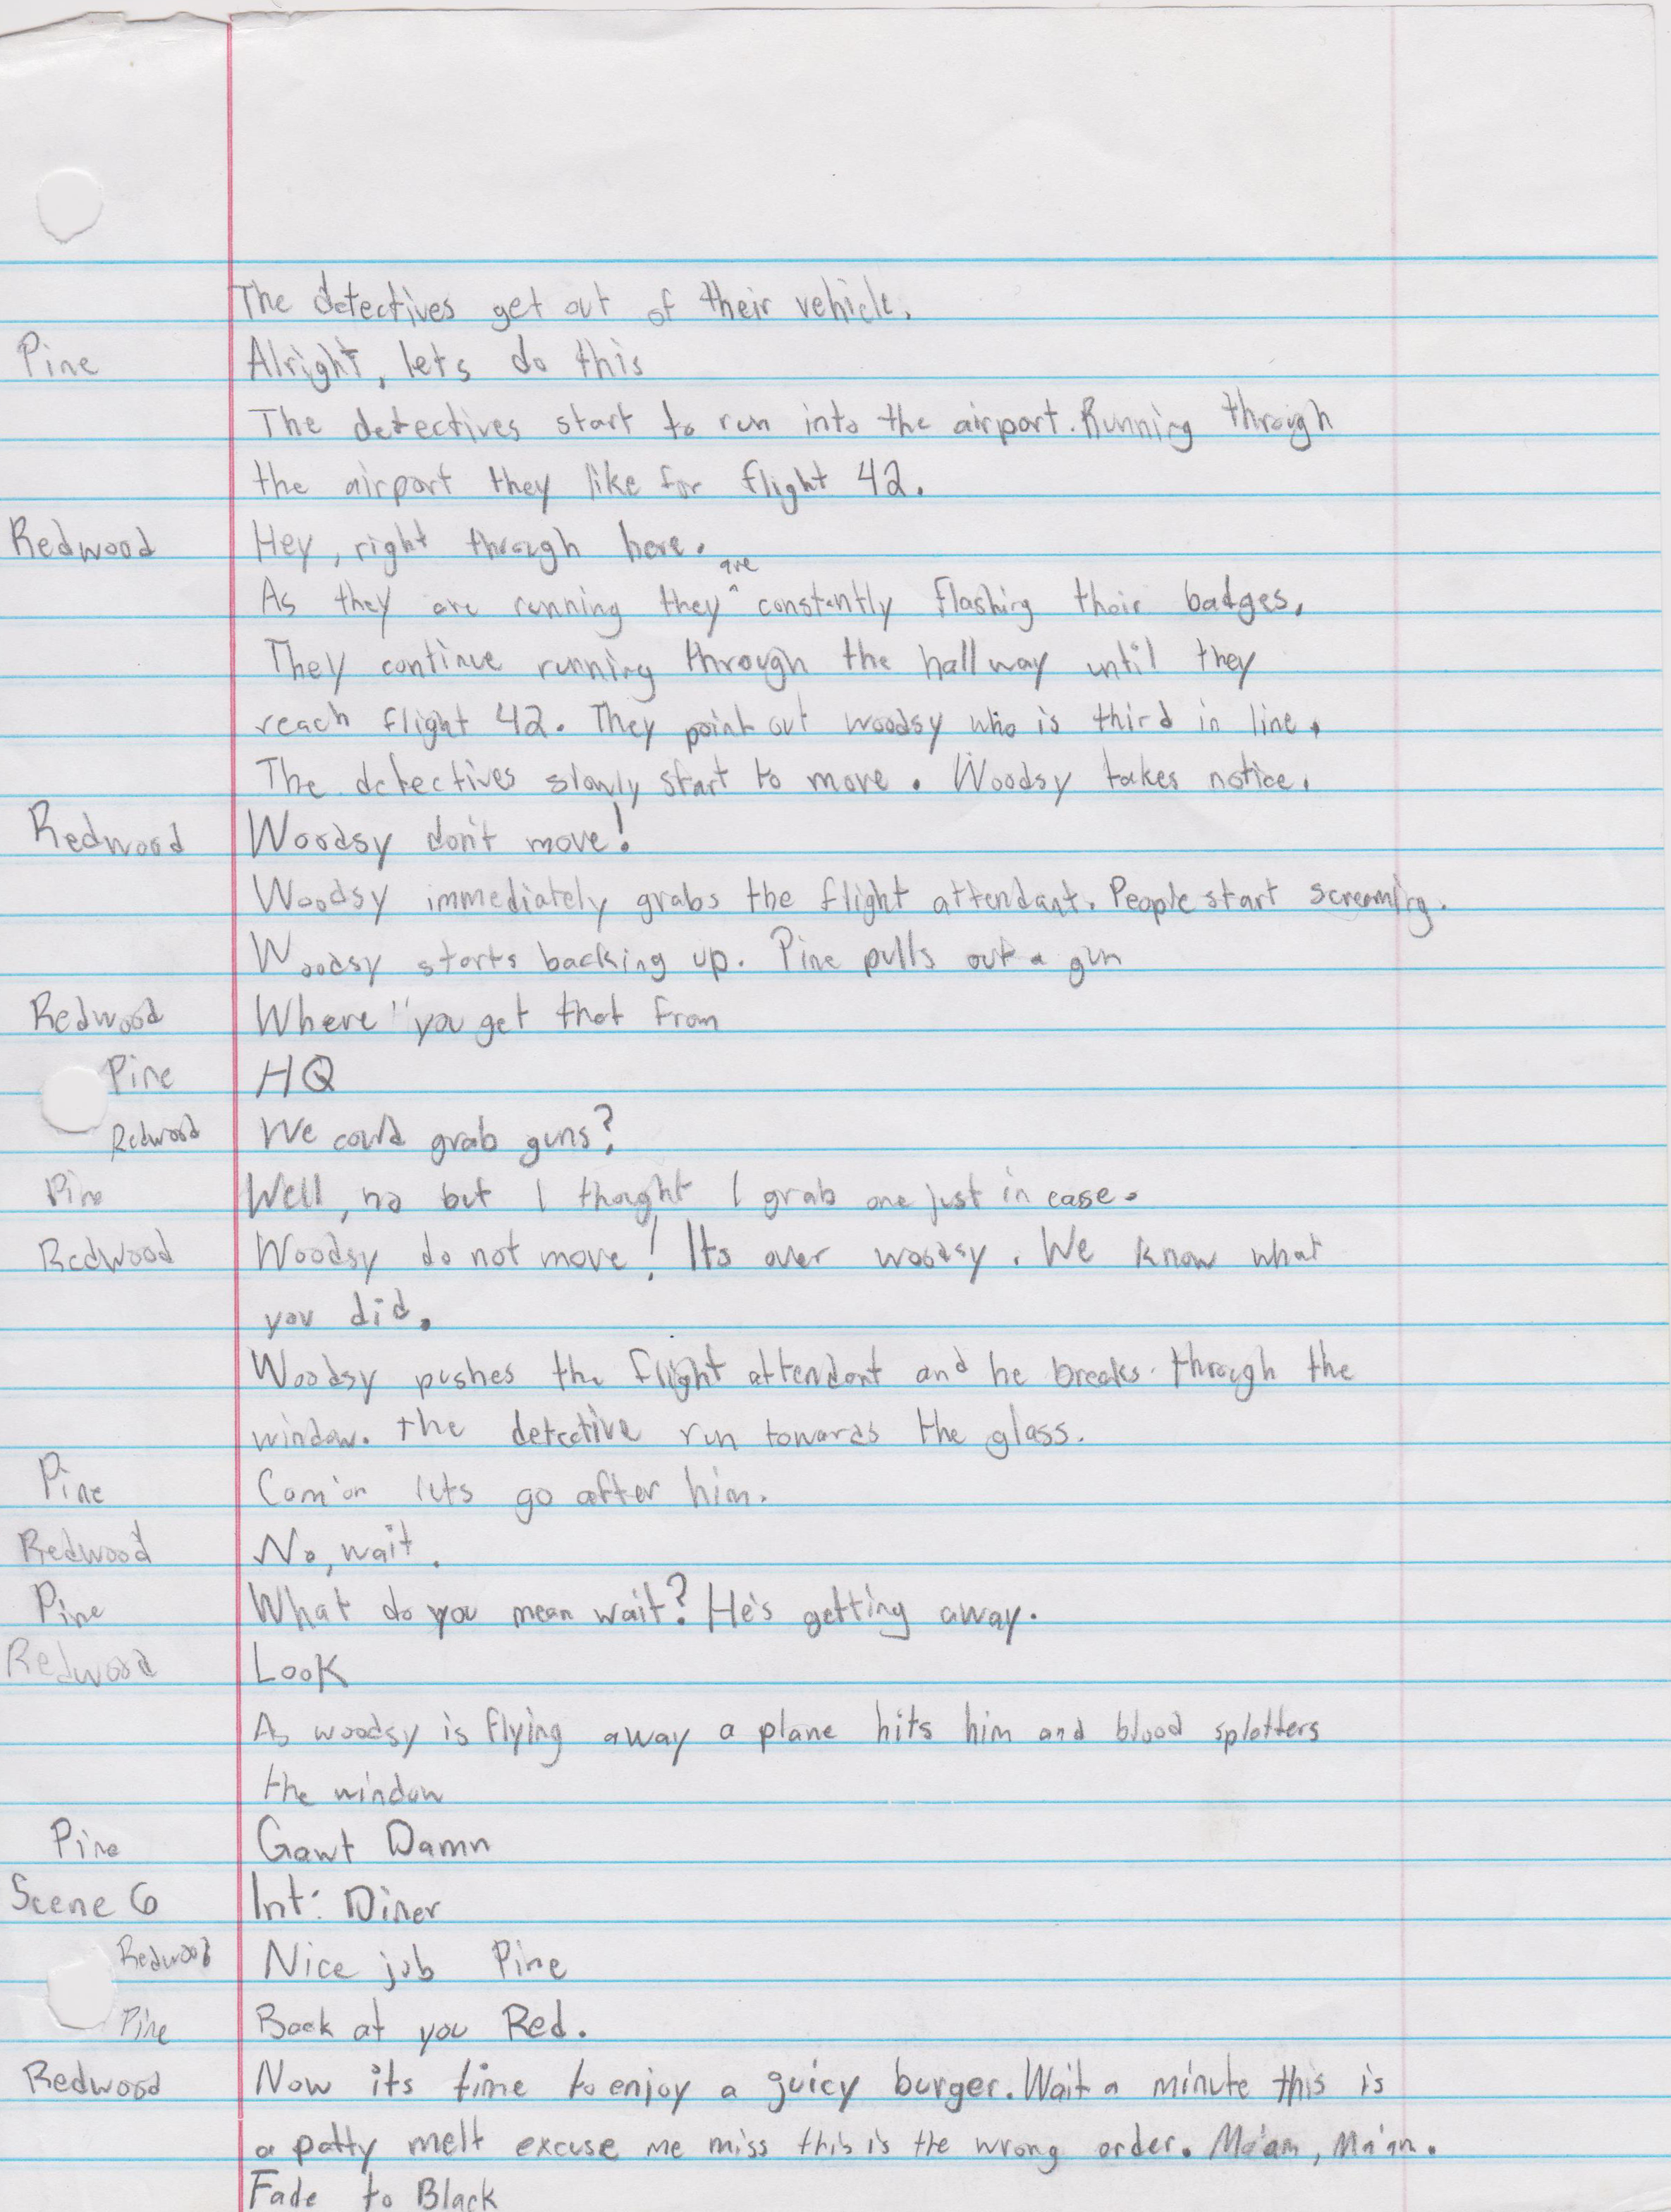 The detectives get out of their vehicle.
Pine Alright, lets do this
The detectives start to run into the airport. Running through
the airport they like for flight 42.
Redwood Hey, right through here.
are
As they are running they ^ constantly flashing their badges.
They continue running through the hallway until they
reach flight 42. They point out woodsy who is third in line.
The detectives slowly start to move. Woodsy takes notice.
Redwood Woodsy don't move!
Woodsy immediately grabs the flight attendant. People start screaming.
Woodsy starts backing up. Pine pulls out a gun
Redwood Where'' you get that from
Pine HQ
Redwood We could grab guns?
Pine Well, no but I thought I grab one just in case.
Redwood Woodsy do not move! Its over woodsy. We know what
you did.
Woodsy pushes the flight attendant and he breaks through the
window. the detective run towards the glass.
Pine Com'on lets go after him.
Redwood No, wait.
Pine What do you mean wait? He's getting away.
Redwood Look
As woodsy is flying away a plane hits him and blood splatters
the window
Pine Gawt Damn
Scene 6 Int: Diner
Redwood Nice job Pine
Pine Back at you Red.
Redwood Now its time to enjoy a guicy burger. Wait a minute this is
a patty melt excuse me miss this is the wrong order. Ma'am, Ma'am.
Fade to Black